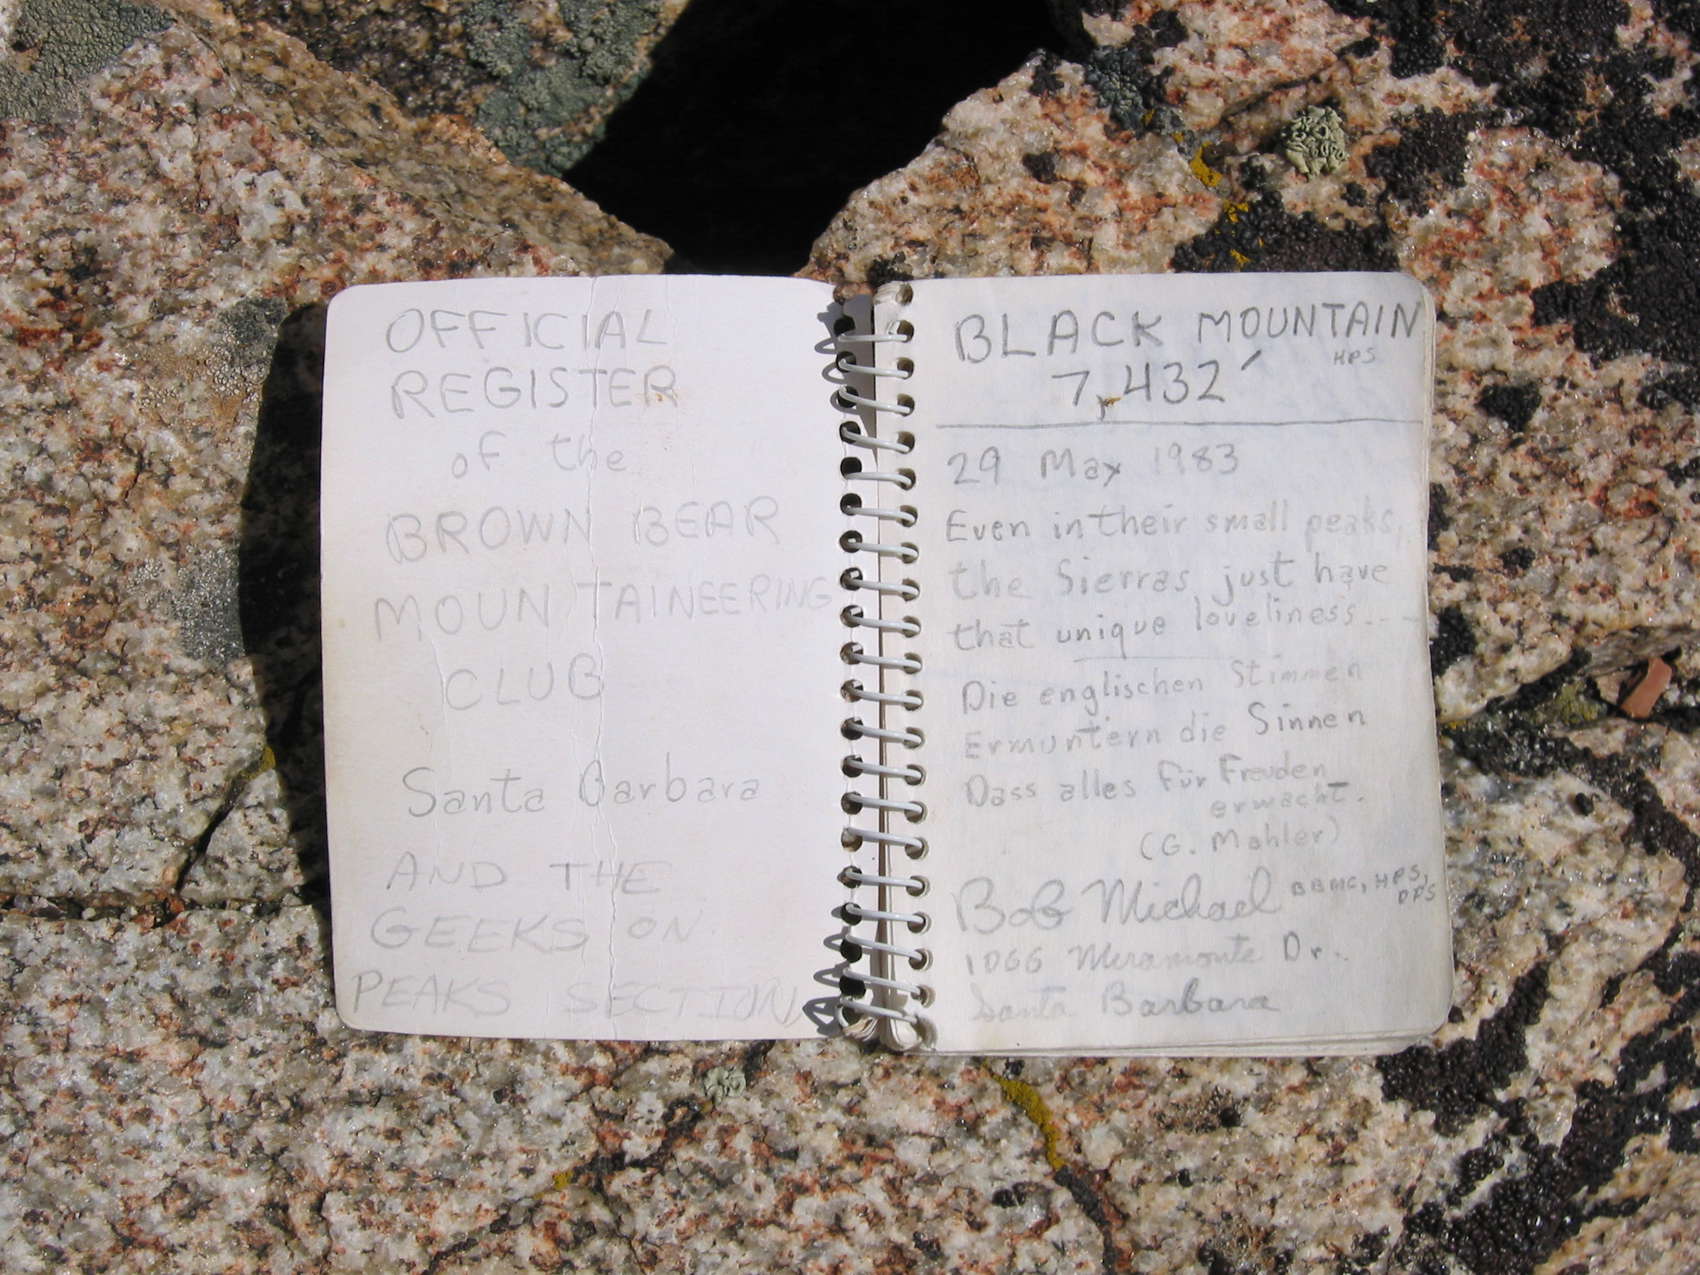 OFFICIAL
REGISTER
of the
BROWN BEAR
MOUNTAINEERING
CLUB
Santa Barbara
AND THE
GEEKS ON
PEAKS SECTION
BLACK MOUNTAIN
HPS
7,432'
29 May 1983
Even in their small peaks,
the Sierras just have
that unique loveliness...
Die englischen Stimmen
Ermuntern die Sinnen
Dass alles für Freuden
erwacht.
(G. Mahler)
Bob Michael BBMC, HPS,
DPS
1066 Miramonte Dr.
Santa Barbara